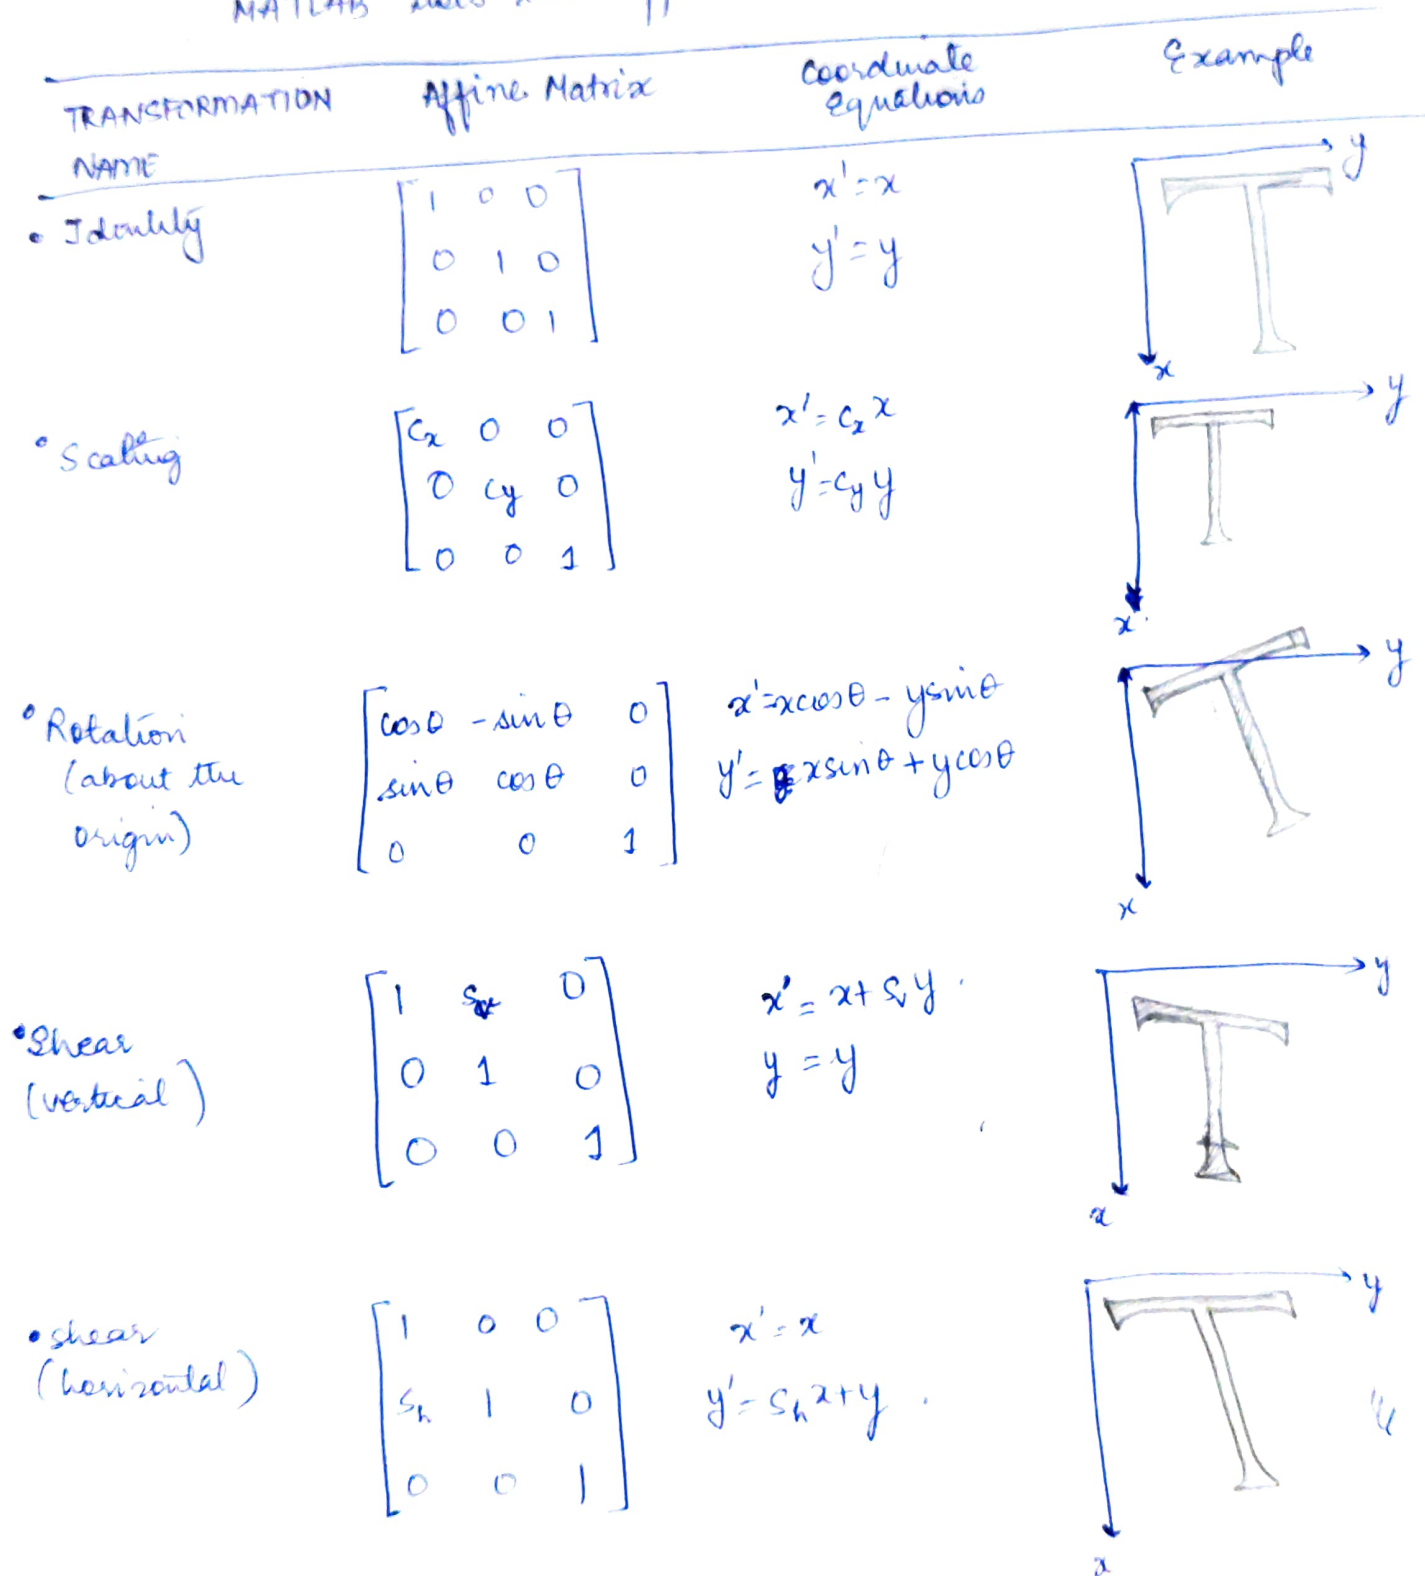 MATLAB
TRANSFORMATION NAME Affine Matrix Coordinate Equations Example
• Identity
[1 0 0
0 1 0
0 0 1]
x' = x
y' = y
y
x
• Scaling
[cx 0 0
0 cy 0
0 0 1]
x' = cx x
y' = cy y
y
x
• Rotation
(about the
origin)
[cosθ -sinθ 0
sinθ cosθ 0
0 0 1]
x' = xcosθ - ysinθ
y' = xsinθ + ycosθ
y
x
• Shear
(vertical)
[1 sv 0
0 1 0
0 0 1]
x' = x + sv y
y = y
y
x
• shear
(horizontal)
[1 0 0
sh 1 0
0 0 1]
x' = x
y' = sh x + y
y
x